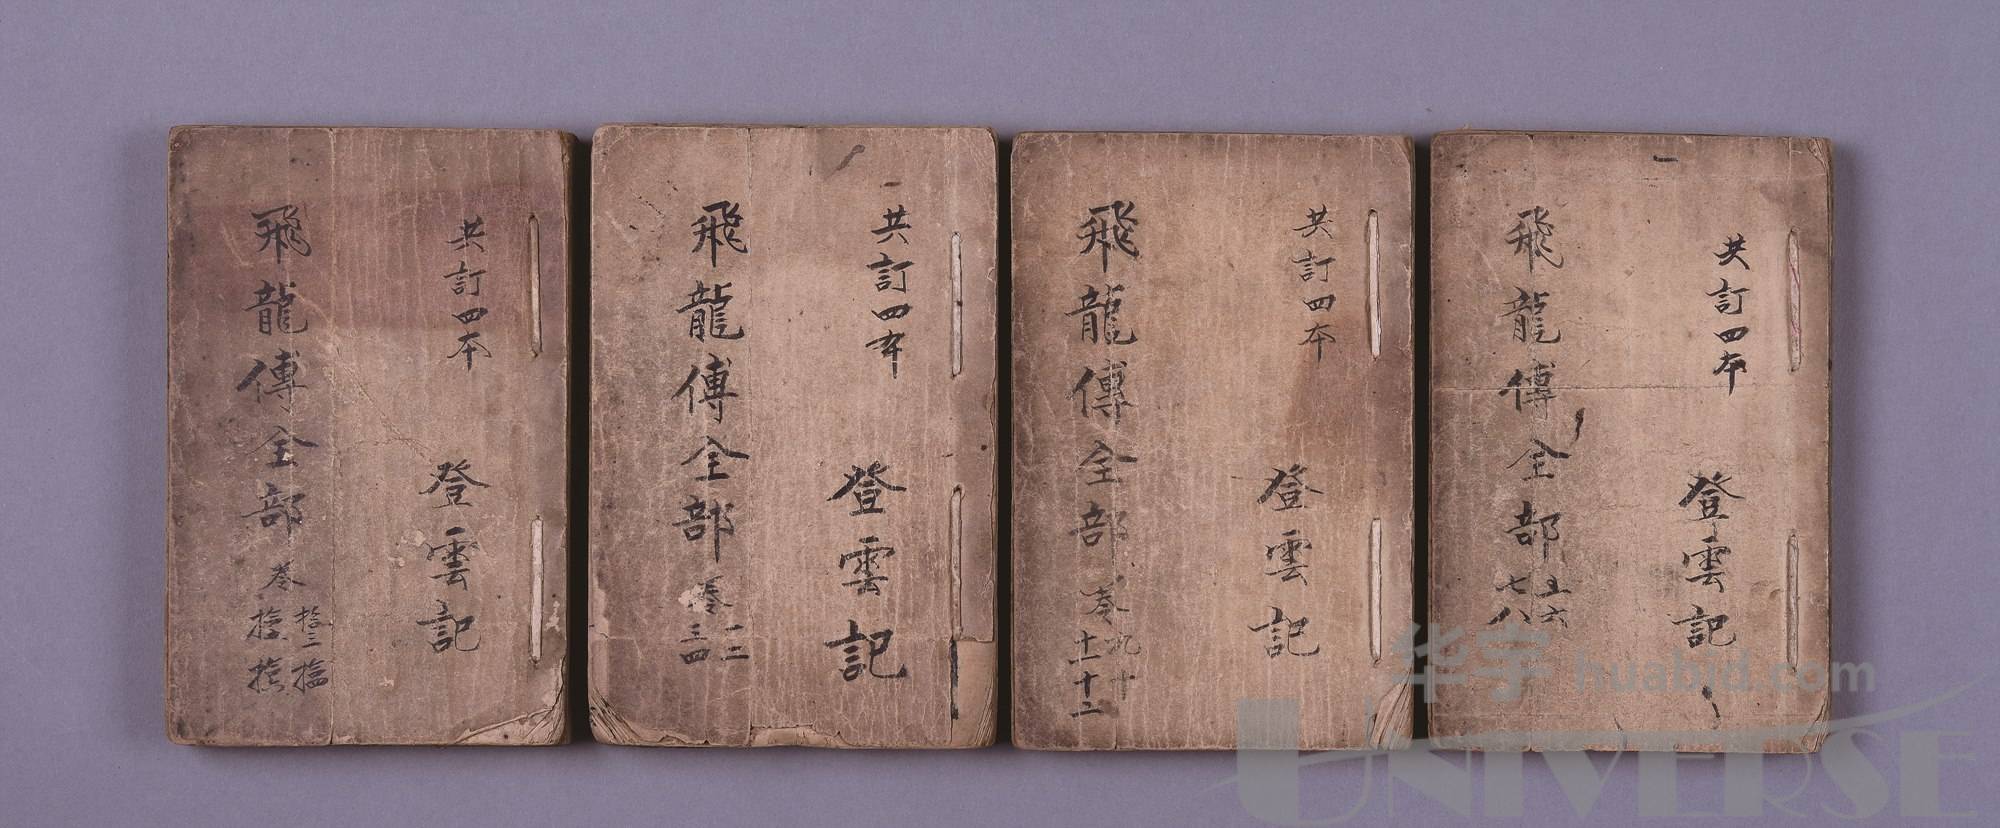 共訂四本
登雲記
飛龍傳全部
卷
拾三
共訂四本
登雲記
飛龍傳全部
卷
一二
三四
共訂四本
登雲記
飛龍傳全部
卷
九十
十一
十二
共訂四本
登雲記
飛龍傳全部
五六
七八
华宇 huabid.com
UNIVERSE